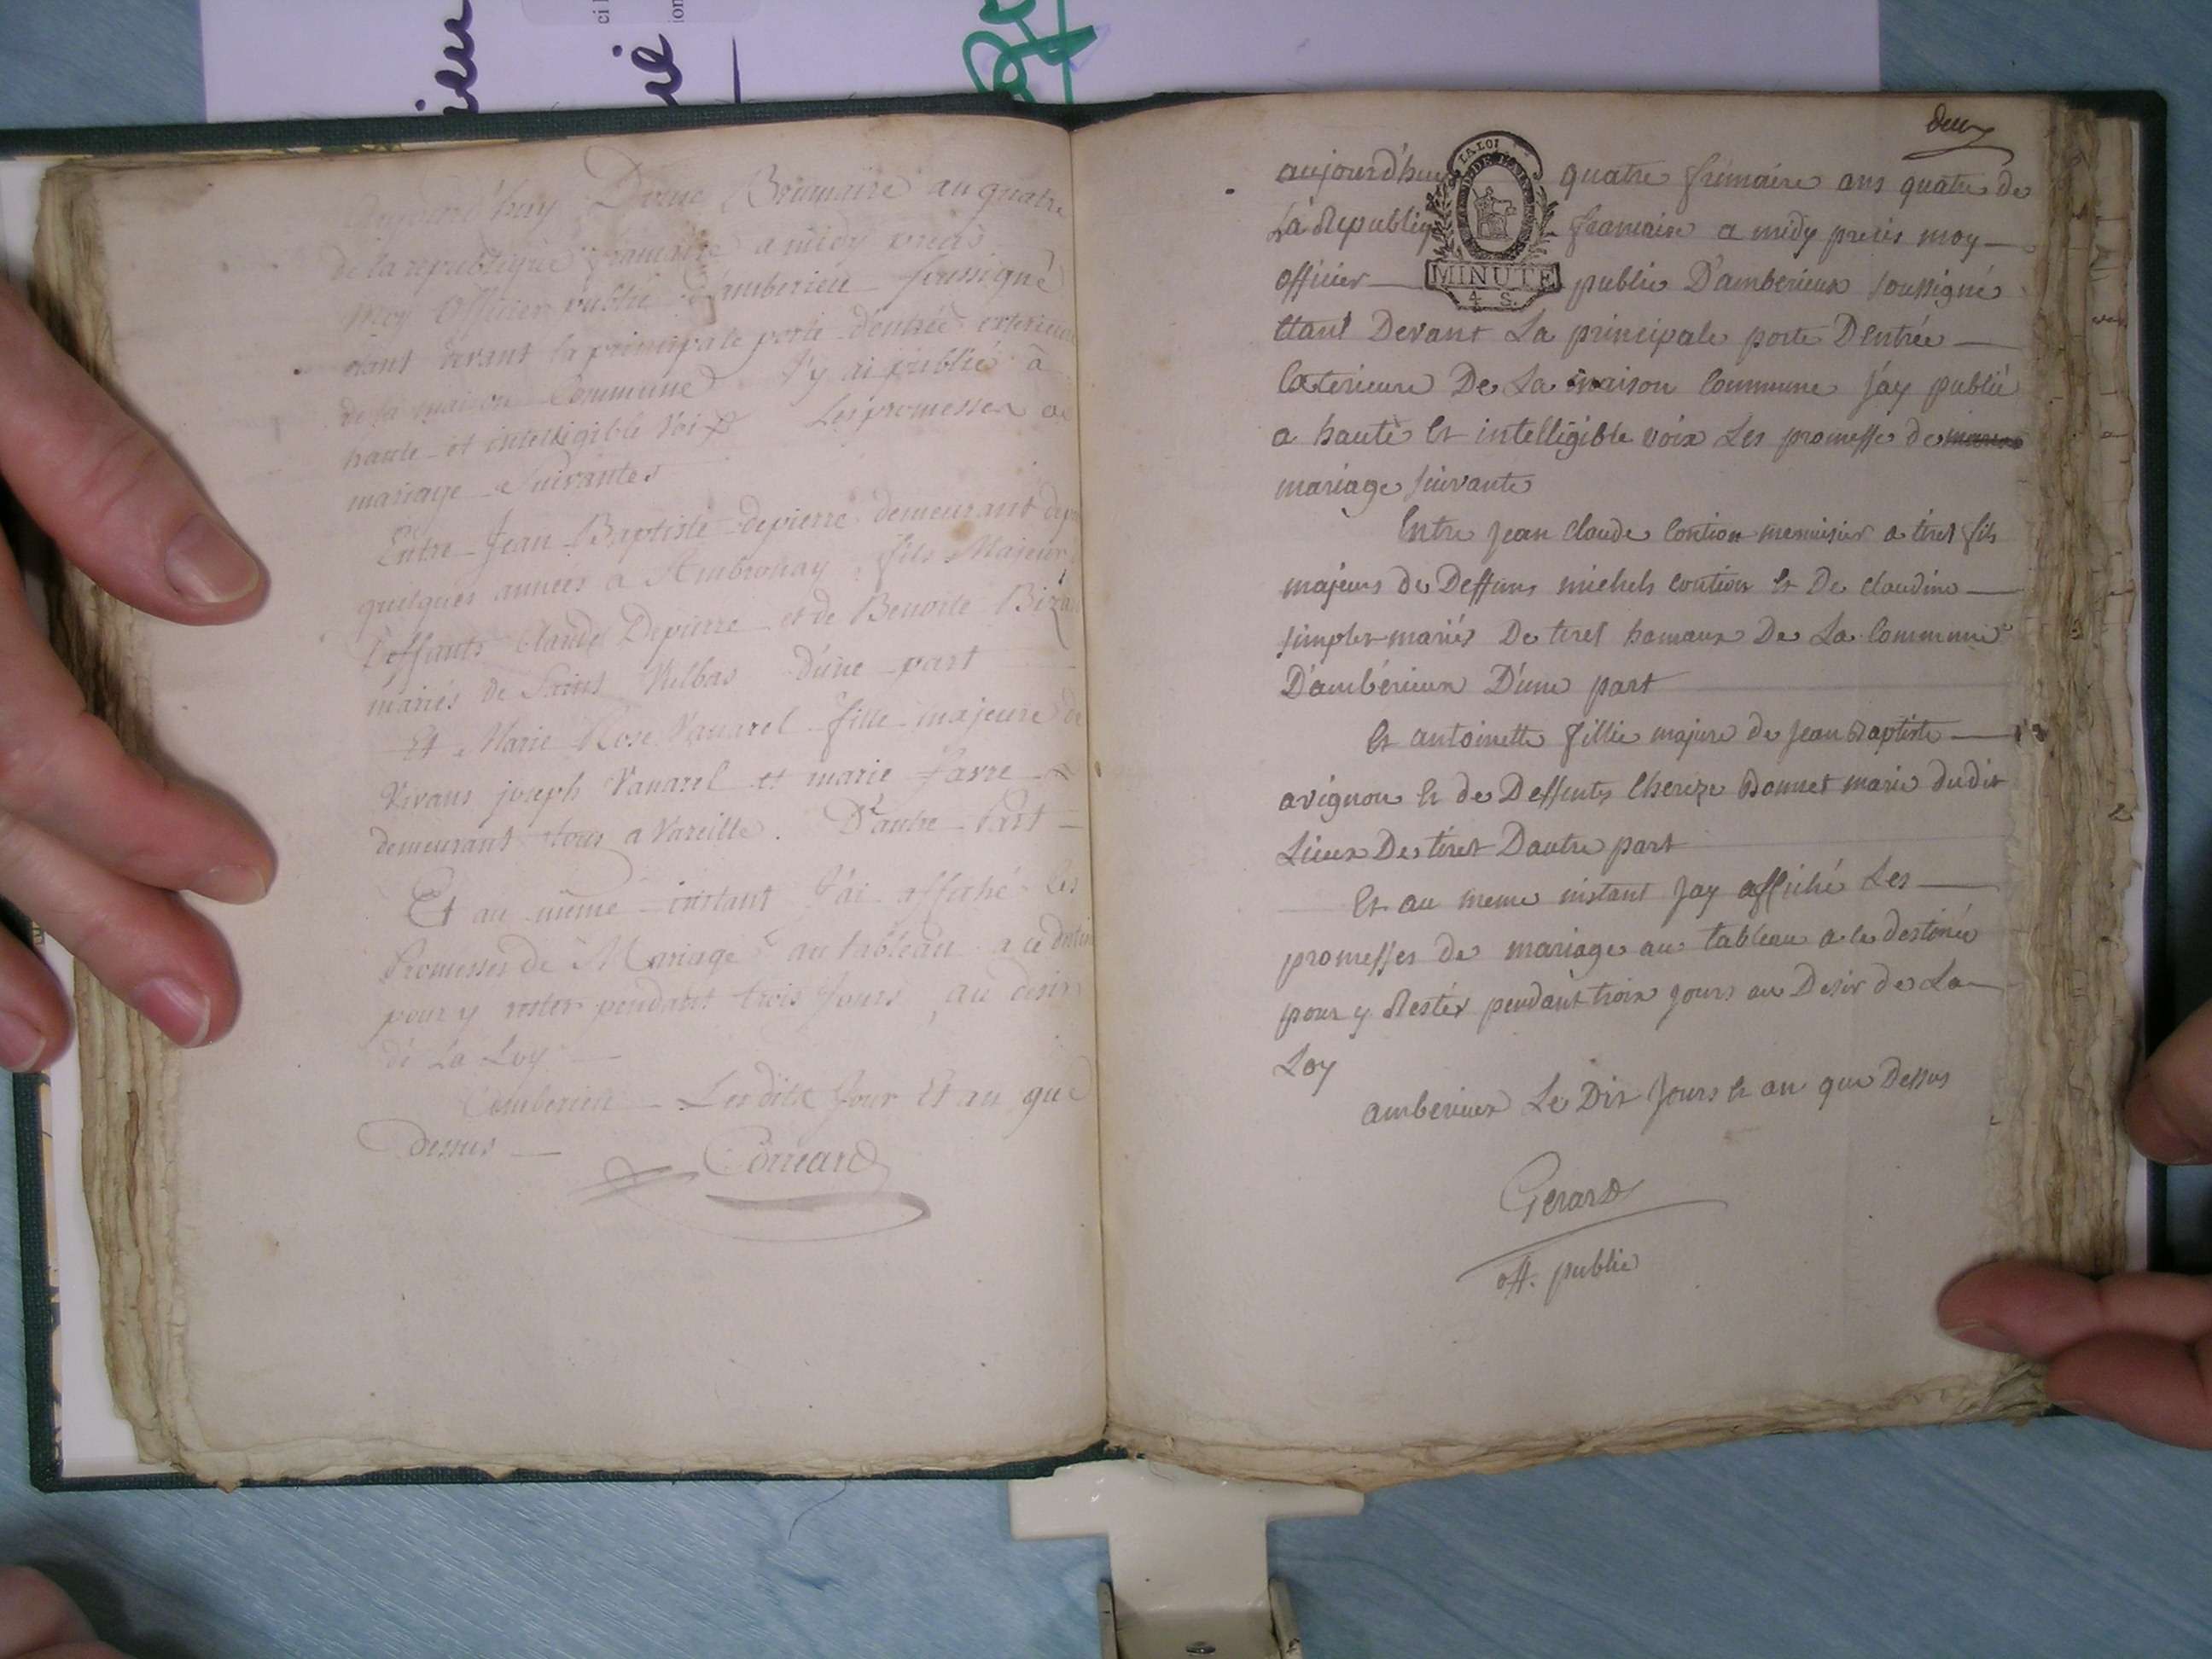 aujourd'huy Douze Brumaire an quatre
de la republique francaise a midy précis
moy Officier public d'amberieu soussigné
étant devant la principale porte d'entrée exterieure
de la maison Commune J'y ai publié à
haute et intelligible voix Les promesses de
mariage Suivantes
Entre Jean Baptiste depierre demeurant depuis
quelques années a Ambronay fils Majeur
Deffunts Claude Depierre et de Benoite
mariés de Saint Vulbas d'une part
Et Marie Rose Vanarel fille majeure de
vivans joseph Vanarel et marie favre
demeurant tous a Vareille. D'autre Part
Et au même instant J'ai affiché les
Promesses de Mariage au tableau a ce destiné
pour y rester pendant trois Jours au desir
de La Loy
amberieu Les dits Jour Et an que
Dessus
deux
aujourd'huy quatre frimaire ans quatre de
La Republiq francaise a midy precis moy
officier public D'amberieux soussigné
LA LOI
MINUTE
4 S.
Etant Devant La principale porte Dentrée
Exterieure De La maison Commune J'ay publié
a haute Et intelligible voix Les promesse de
mariage suivante
Entre jean claude Contion menuisier a tiret fils
majeurs de Deffuns michels Contion Et De claudine
simpler mariés De tiret hamaux De La Commune
D'ambérieux D'une part
Et antoinette fillie majure de Jean Baptiste
avignon Et de Deffuntes therèze Bonnet marie dudit
Lieux De tiret Dautre part
Et au meme instant Jay affiché Les
promesses de mariage au tableau a ce destinée
pour y Rester pendant trois jours au Desir de La
Loy
amberieux Le Dit Jours Et an que Dessus
Gerard
off. public